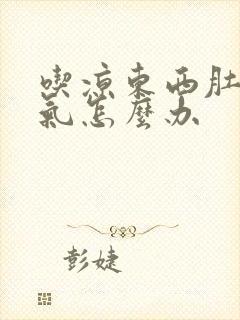 喫涼東西肚
氣怎麼办
彭婕